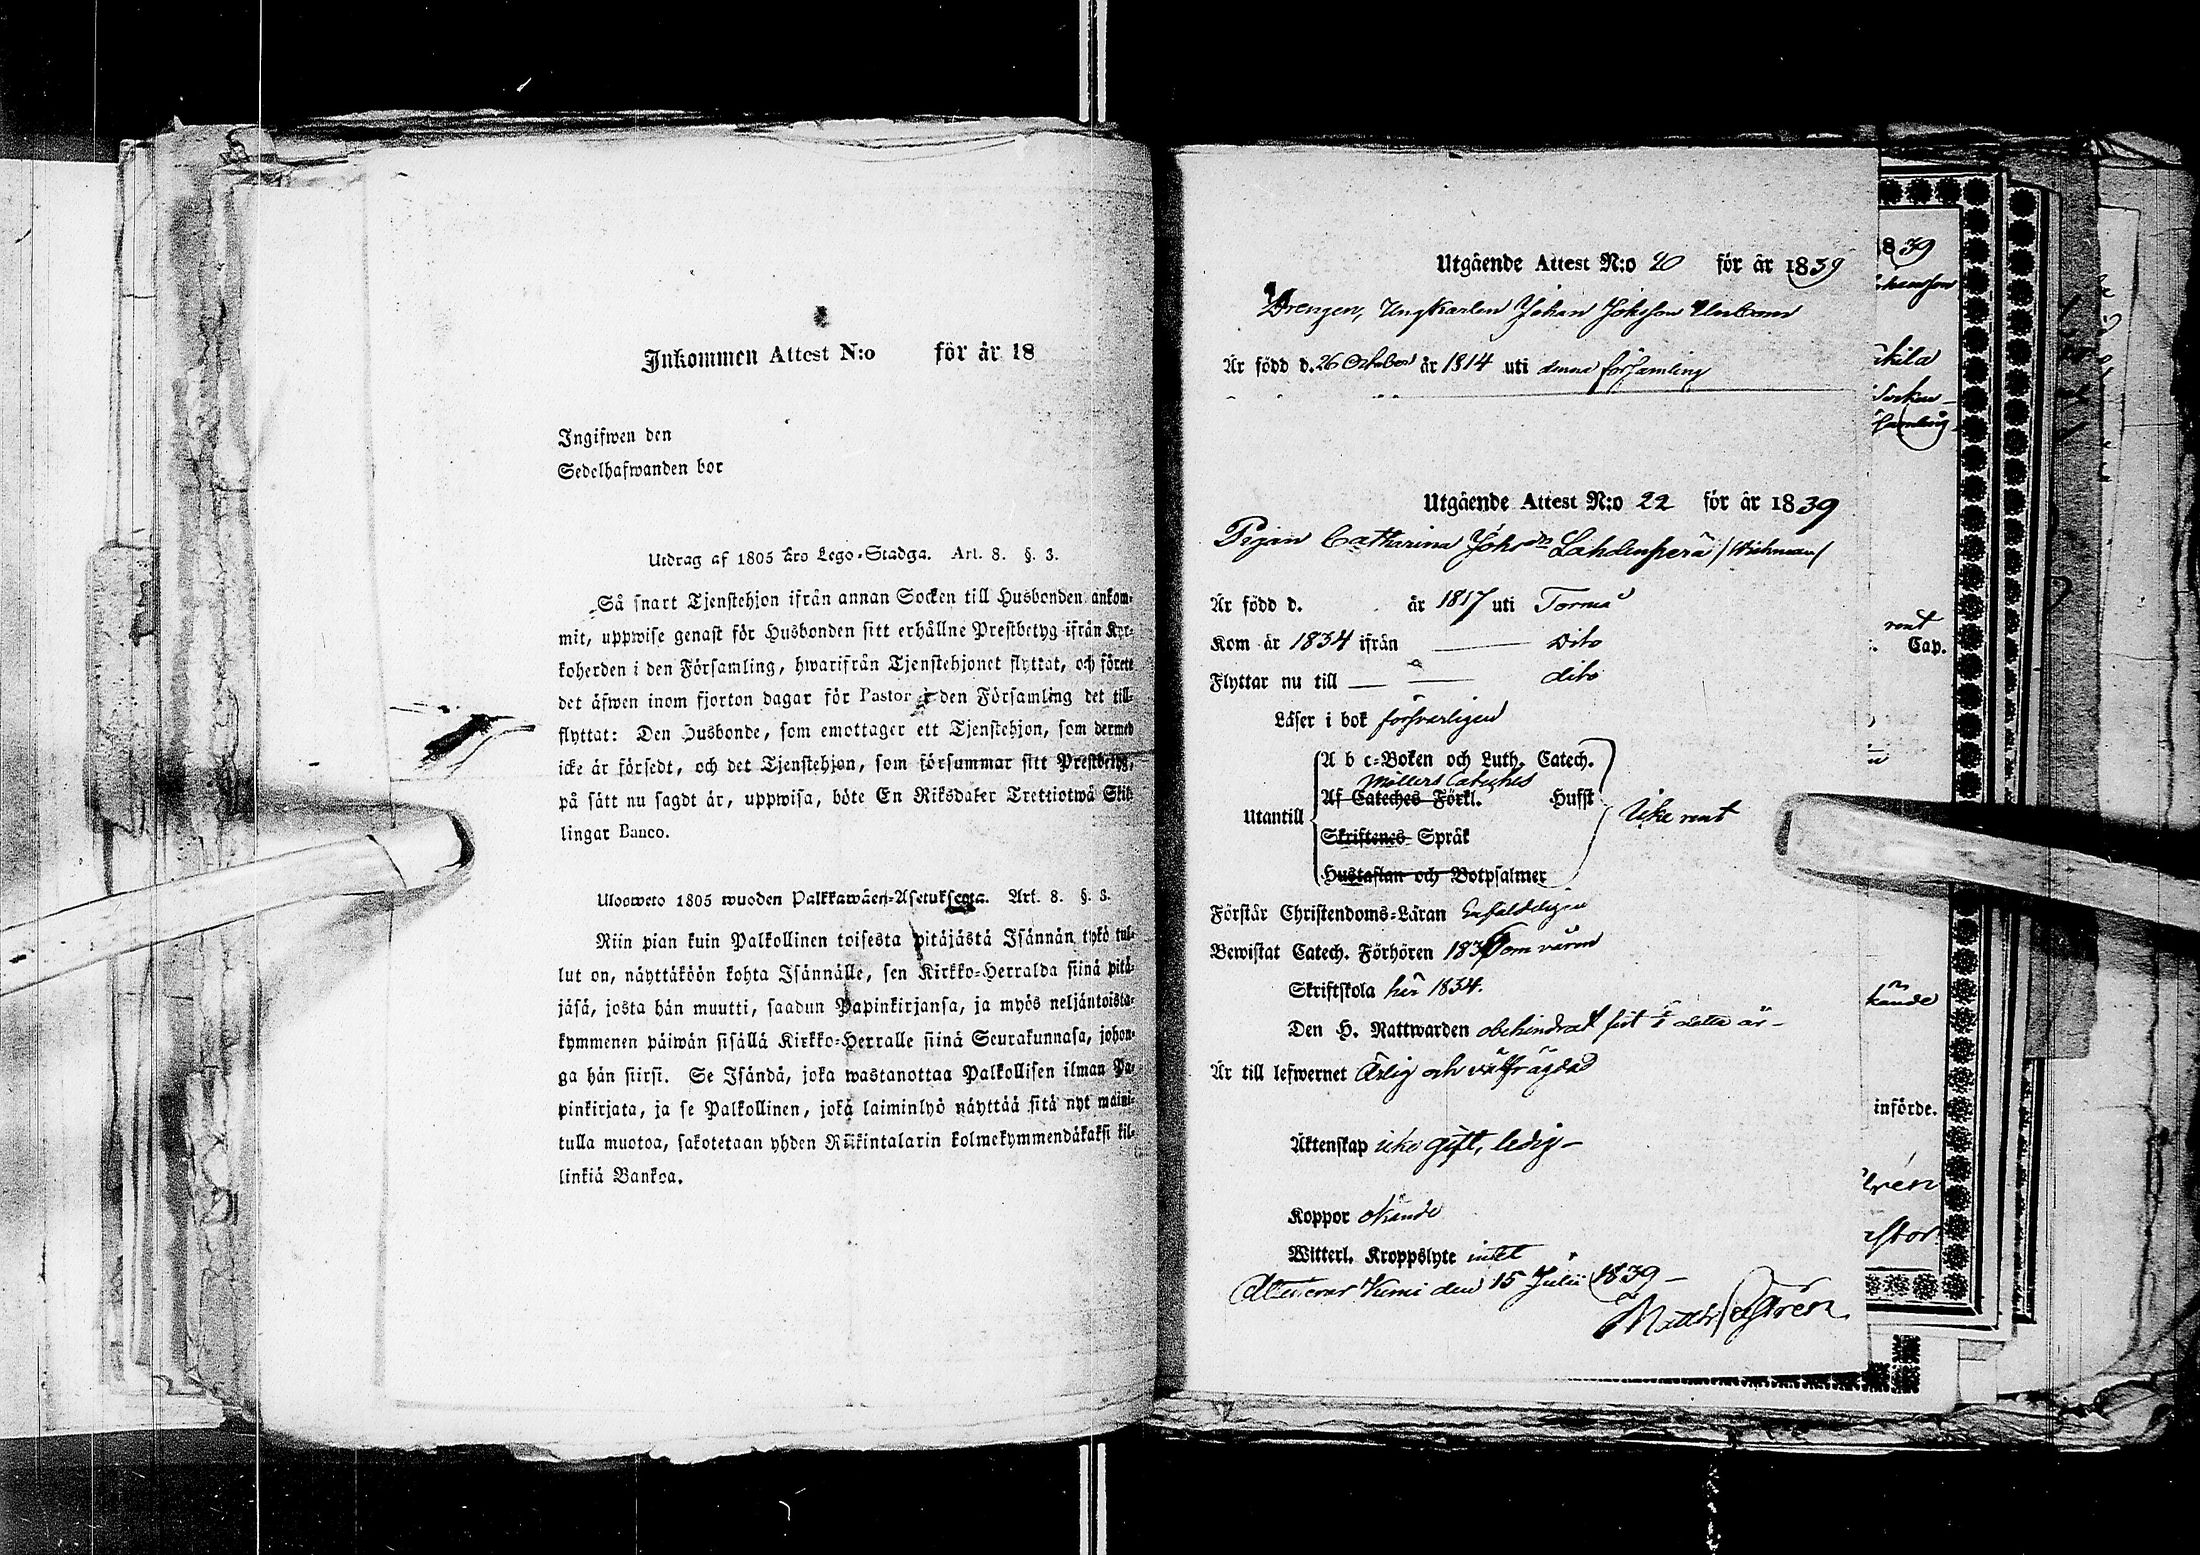 Inkommen Attest N:o för år 18
Ingifwen den
Sedelhafwanden bor
Utdrag af 1805 års Lego-Stadga. Art. 8. §. 3.
Så snart Tjenstehjon ifrån annan Socken till Husbonden ankom-
mit, uppwise genast för Husbonden sitt erhållne Prestbetyg ifrån Kyr-
koherden i den Församling, hwarifrån Tjenstehjonet flyttat, och förete
det äfwen inom fjorton dagar för Pastor i den Församling det till-
flyttat: Den Husbonde, som emottager ett Tjenstehjon, som dermed
icke är försedt, och det Tjenstehjon, som försummar sitt Prestbetyg,
på sätt nu sagdt är, uppwisa, böte En Riksdaler Trettiotwå Skil-
lingar Banco.
Ulosweto 1805 wuoden Palkkawäen-Asetuksesta. Art. 8. §. 3.
Niin pian kuin Palkollinen toisesta pitäjästä Isännän tykö tul-
lut on, näyttäköön kohta Isännälle, sen Kirkko-Herralda siinä pitä-
jäsä, josta hän muutti, saadun Papinkirjansa, ja myös neljäntoista-
kymmenen päiwän sisällä Kirkko-Herralle siinä Seurakunnasa, johon-
ga hän siirsi. Se Isändä, joka wastanottaa Palkollisen ilman Pa-
pinkirjata, ja se Palkollinen, joka laiminlyö näyttää sitä nyt maini-
tulla muotoa, sakotetaan yhden Riikintalarin kolmekymmendäkaksi kil-
linkiä Bankoa.
Utgående Attest N:o 20 för år 1839
Drengen, Ungkarlen Johan Johsson
Är född d. 26 October år 1814 uti denna församling
Utgående Attest N:o 22 för år 1839
Pigan Catharina Johsdr Lahdenperä /Wichman/
Är född d. år 1817 uti Torneå
Kom år 1834 ifrån — Dito
Flyttar nu till — — dito
Läser i bok försvarligen
A b c-Boken och Luth. Catech.
Möllers Cateches
Af Cateches Förkl. Hufst
Utantill
Skriftenes Språk
Icke rent
Hustaflan och Botpsalmer
Förstår Christendoms-Läran Enfaldeligen
Bewistat Catech. Förhören 183
Skriftskola här 1834.
Den H. Nattwarden obehindrat sist i detta år —
Är till lefwernet Ärlig och välfrägdad
Äktenskap icke gift, ledig —
Koppor okände
Witterl. Kroppslyte intet
Attesterar Kemi den 15 Julii 1839 —
Matth.
1839
Cap.
införde.